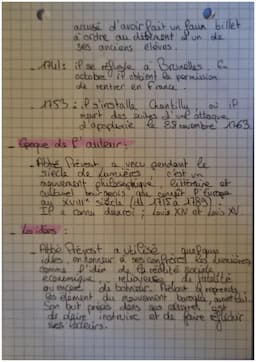 accusé d'avoir fait un faux billet
à ordre au détriment d'un de
ses anciens élèves.
- 1741 : il se réfugie à Bruxelles. En
octobre il obtient la permission
de rentrer en France.
- 1753 : il s'installe Chantilly où il
meurt des suites d'une attaque
d'apoplexie le 25 novembre 1763.
- Epoque de l'auteur :
- Abbé Prévost a vécu pendant le
siècle de lumières, c'est un
mouvement philosophique, littéraire et
culturel bourgeois que connaît l'Europe
au XVIIIe siècle (de 1715 à 1789).
IP a connu deux roi ; Louis XIV et Louis XV
- Les idées :
- Abbé Prévost a utilisé quelques
idées en honneur à ses confrères les lumières
comme l'idée de la réalité sociale
économique, religieuse, de fatalité
ou encore de bonheur. Prévost à reprends
les élément du mouvement baroque,
Son but précis dans ses est
de plaire instruire et de faire réfléchir
ses lecteurs.